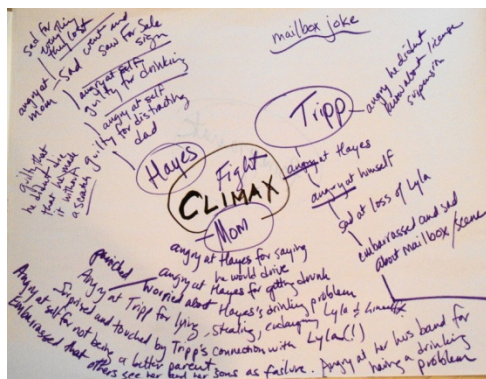 mailbox joke
sad for thing
they lost
sad went and
saw for Sale
sign
angry at
mom
angry at self
guilty for drinking
angry at self
guilty for distracting
dad
guilty that
he didnt die
that he made
it without
a scratch
Hayes
Tripp
angry he didnt
know about license
suspension
angry at Hayes
angry at himself
sad at loss of Lyla
embarrassed and sad
about mailbox/scene
Fight
CLIMAX
Mom
angry at Hayes for saying
he would drive
angry at Hayes for getting drunk
panicked/worried about Hayes's drinking problem
Angry at Tripp for lying, stealing, endangering Lyla &
Surprised and touched by Tripp's connection with Lyla(!)
Angry at self for not being a better parent
Embarrassed that others see her and her sons as failure.
Angry at her husband for
having a drinking
problem